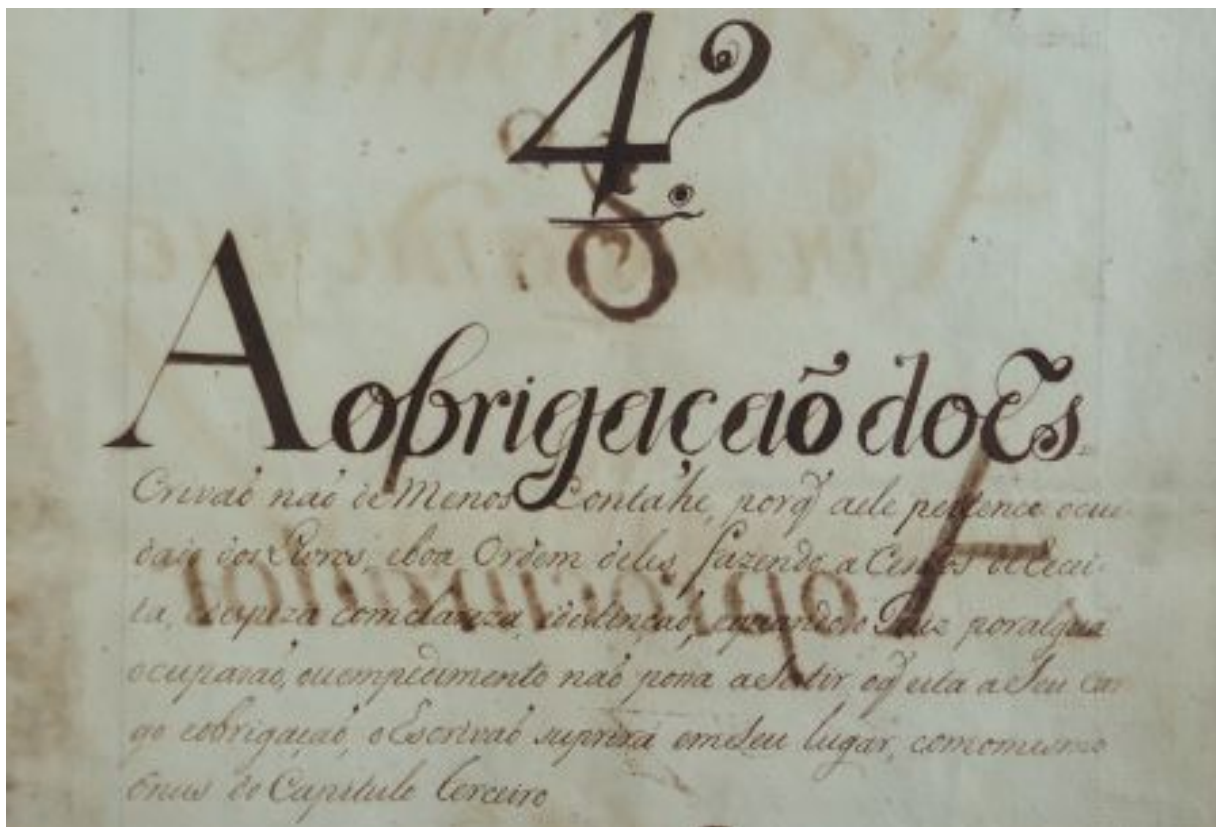 4º
A obrigaçaõ do Es
Crivaõ naõ he Menos Conta he, porq̃ a ele pertence o cui
dado dos Livros, e boa Ordem deles, fazendo a Centos de Recei
ta, e espeza com clareza, e distenção, e quando o Juiz por algua
ocupaçaõ, ou empedimento naõ possa a Sestir, o q̃ esta a Seu Car
go e obrigaçaõ, o Escrivaõ suprirá em Seu lugar, com o mesmo
onus do Capitulo terceiro